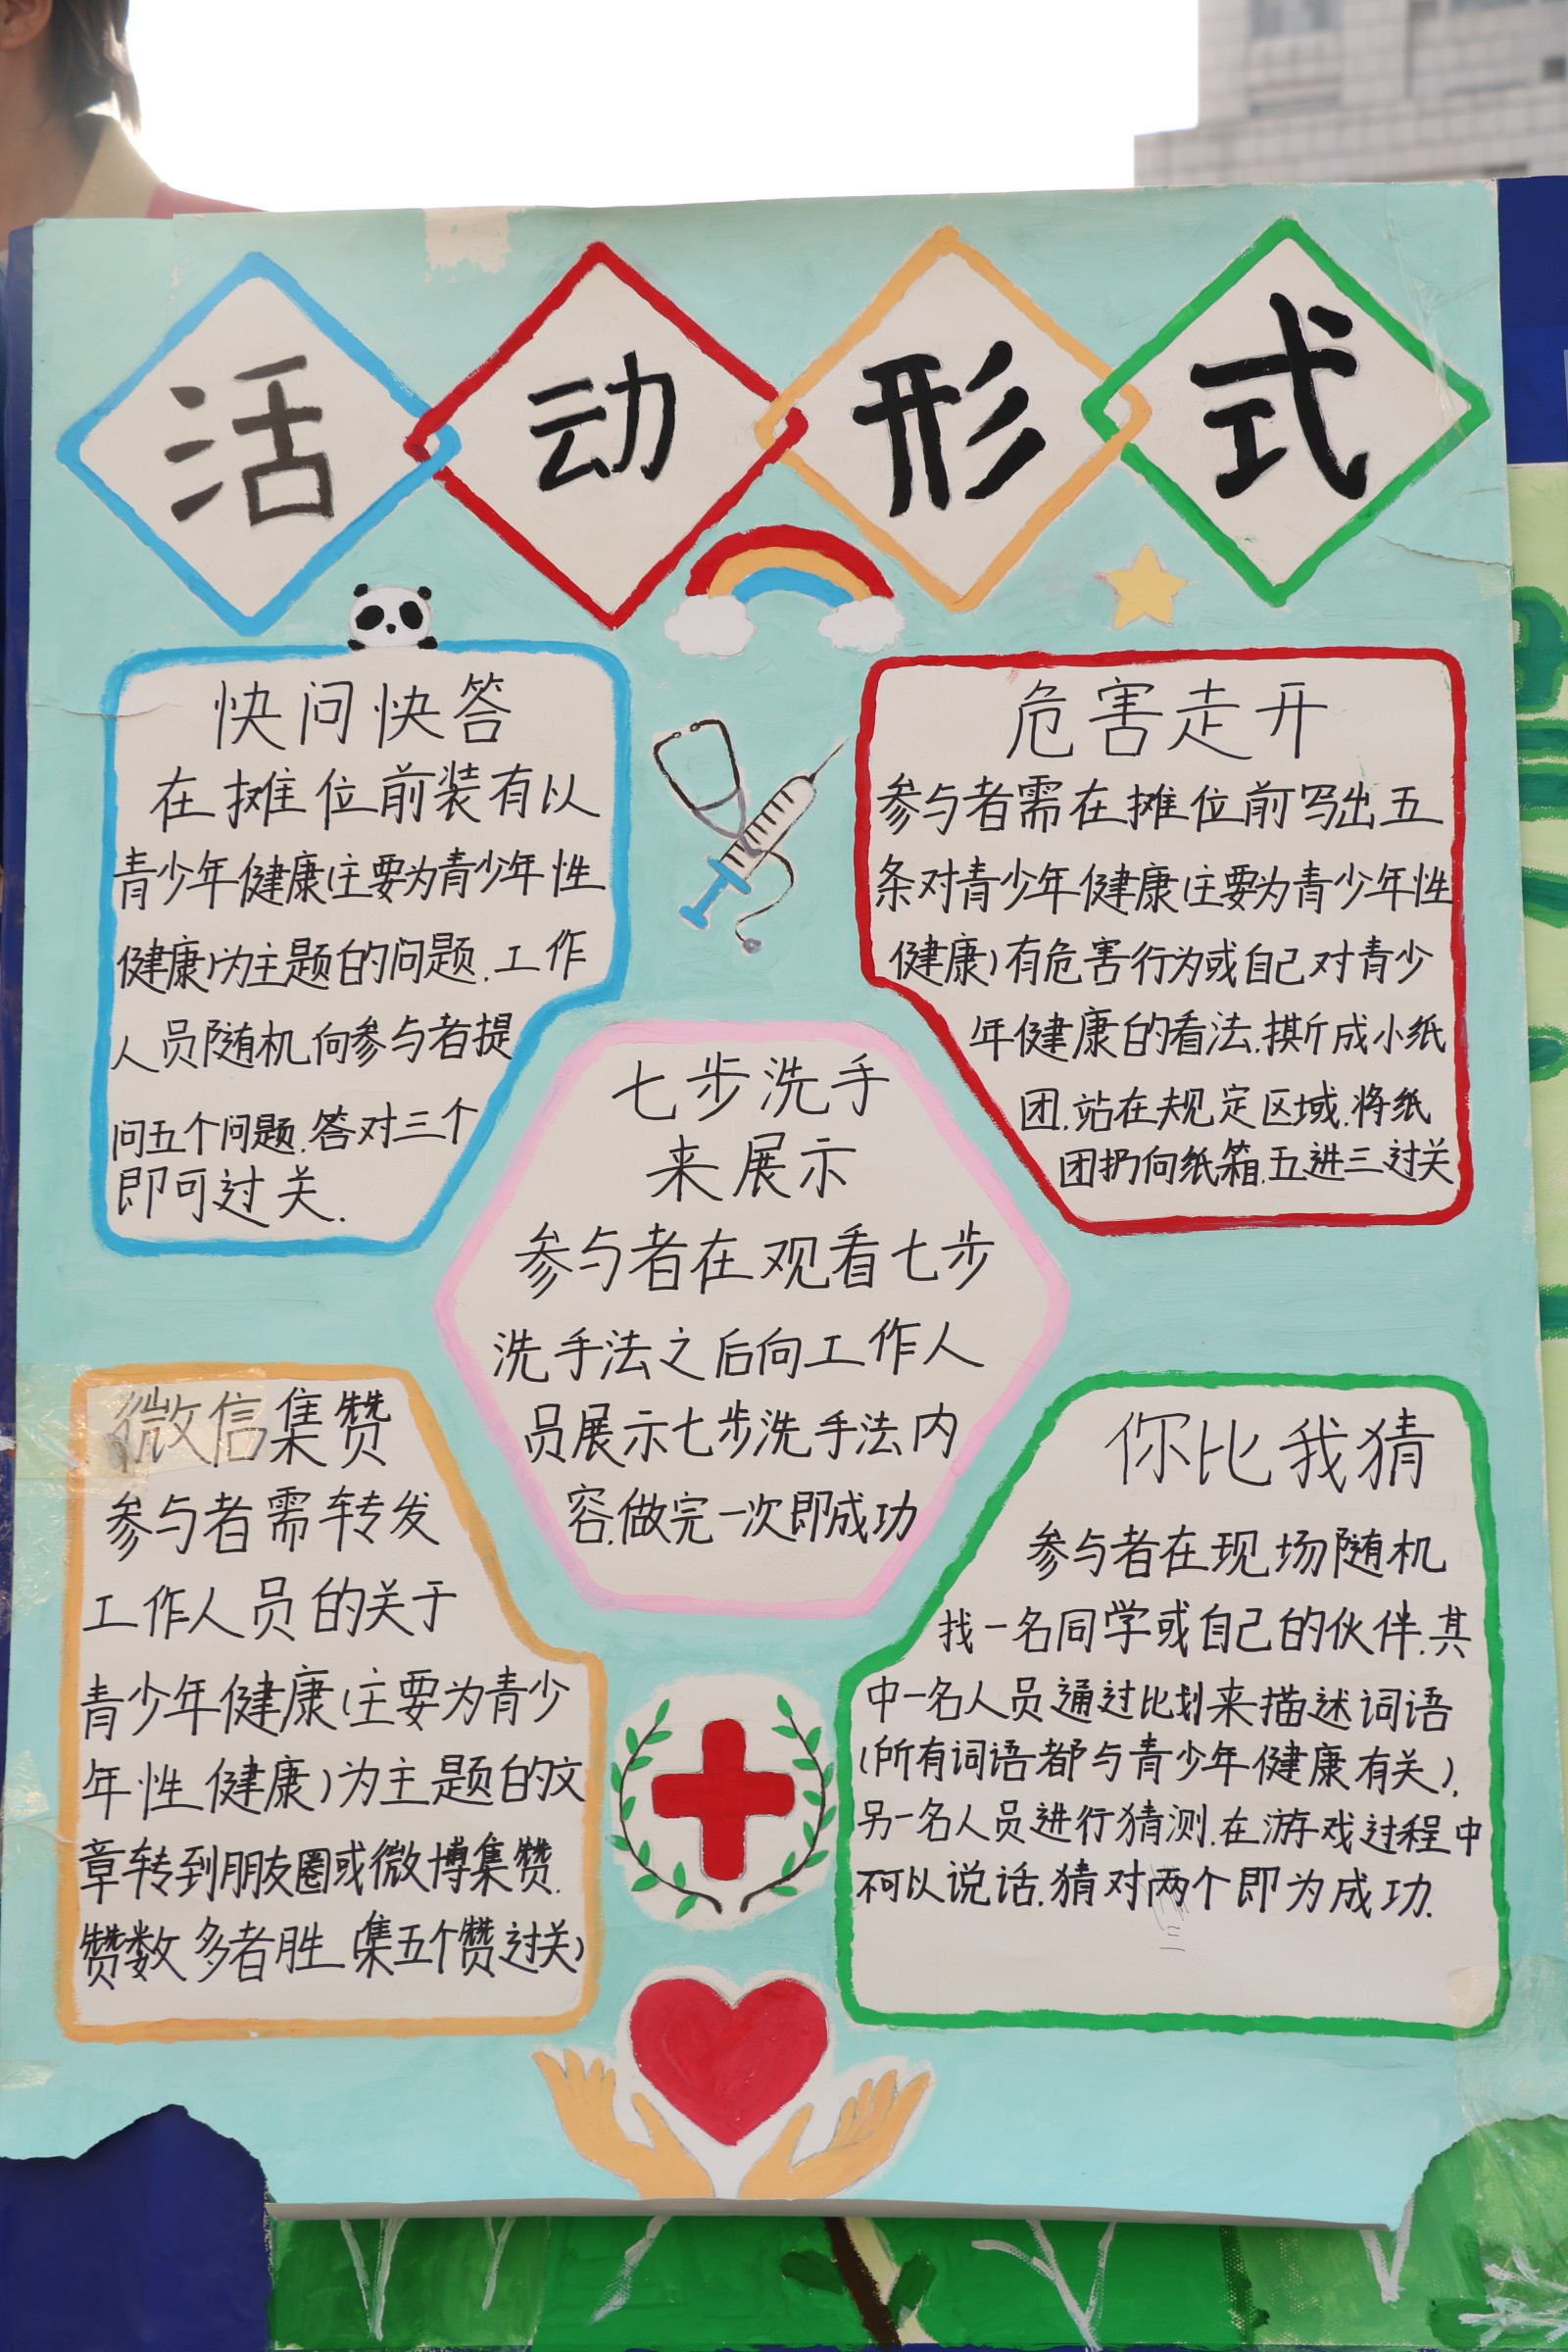 活动形式
快问快答
在摊位前装有以
青少年健康(主要为青少年性
健康)为主题的问题,工作
人员随机向参与者提
问五个问题,答对三个
即可过关.
危害走开
参与者需在摊位前写出五
条对青少年健康(主要为青少年性
健康)有危害行为或自己对青少
年健康的看法,撕成小纸
团,站在规定区域,将纸
团扔向纸箱,五进三过关
七步洗手
来展示
参与者在观看七步
洗手法之后向工作人
员展示七步洗手法内
容,做完一次即成功
微信集赞
参与者需转发
工作人员的关于
青少年健康(主要为青少
年性健康)为主题的文
章转到朋友圈或微博集赞.
赞数多者胜(集五个赞过关)
你比我猜
参与者在现场随机
找一名同学或自己的伙伴,其
中一名人员通过比划来描述词语
(所有词语都与青少年健康有关),
另一名人员进行猜测,在游戏过程中
不可以说话,猜对两个即为成功.
三